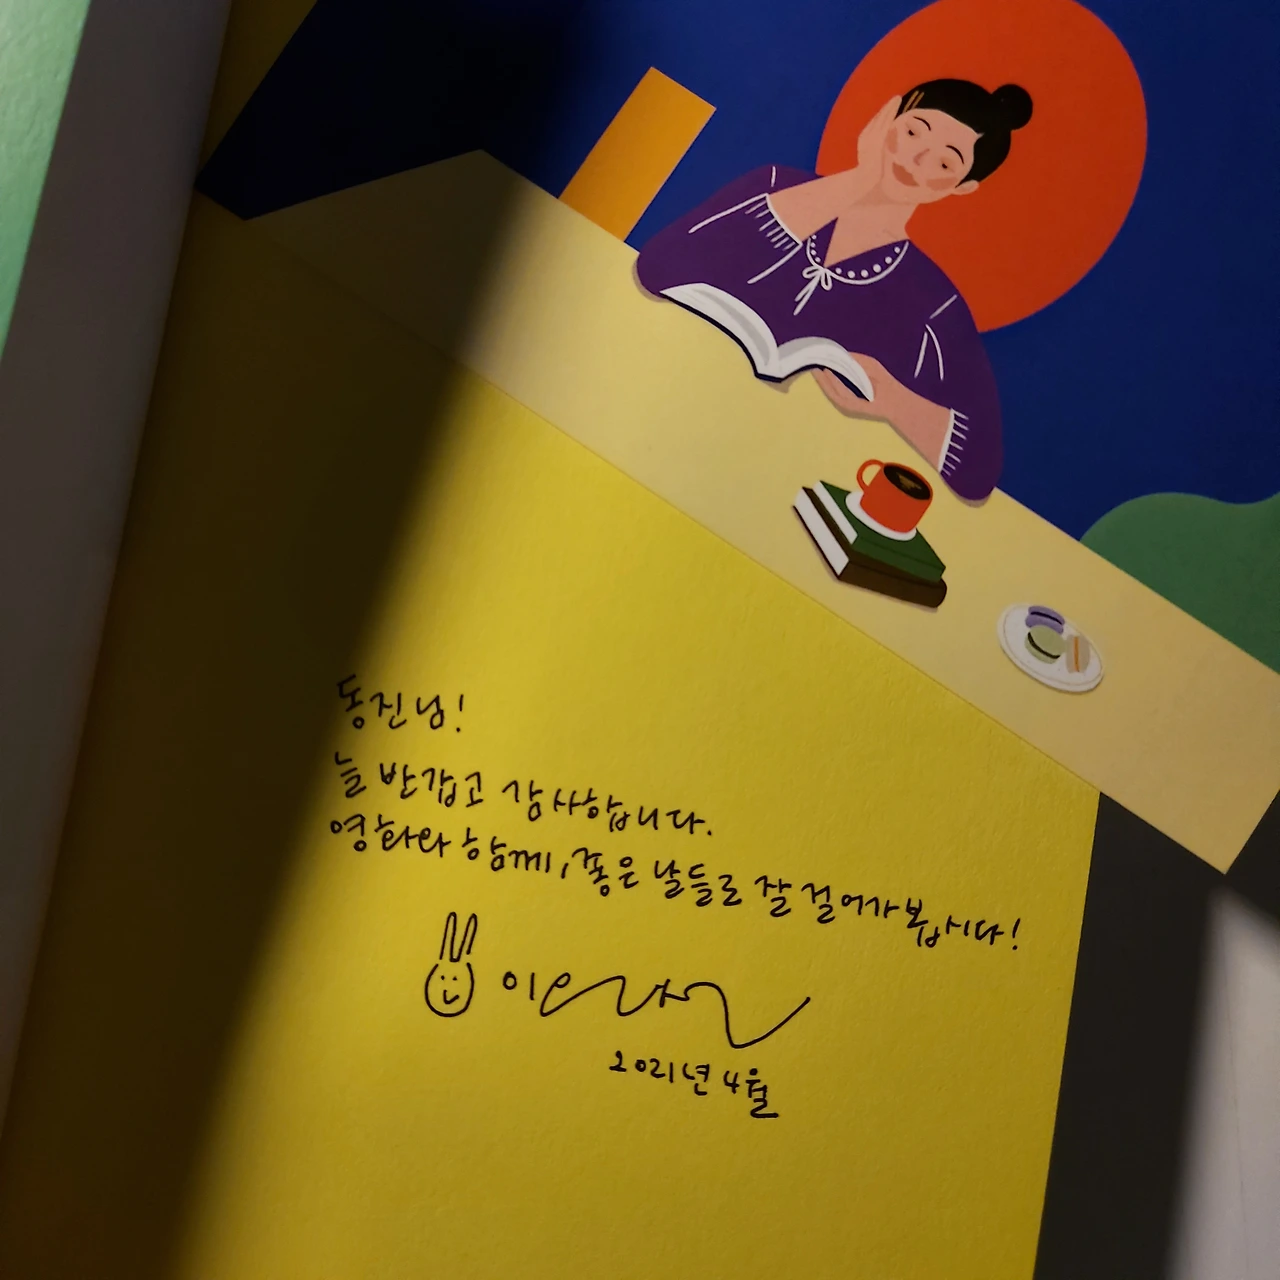 동진님!
늘 반갑고 감사합니다.
영화와 함께, 좋은 날들로 잘 걸어가봅시다!
2021년 4월